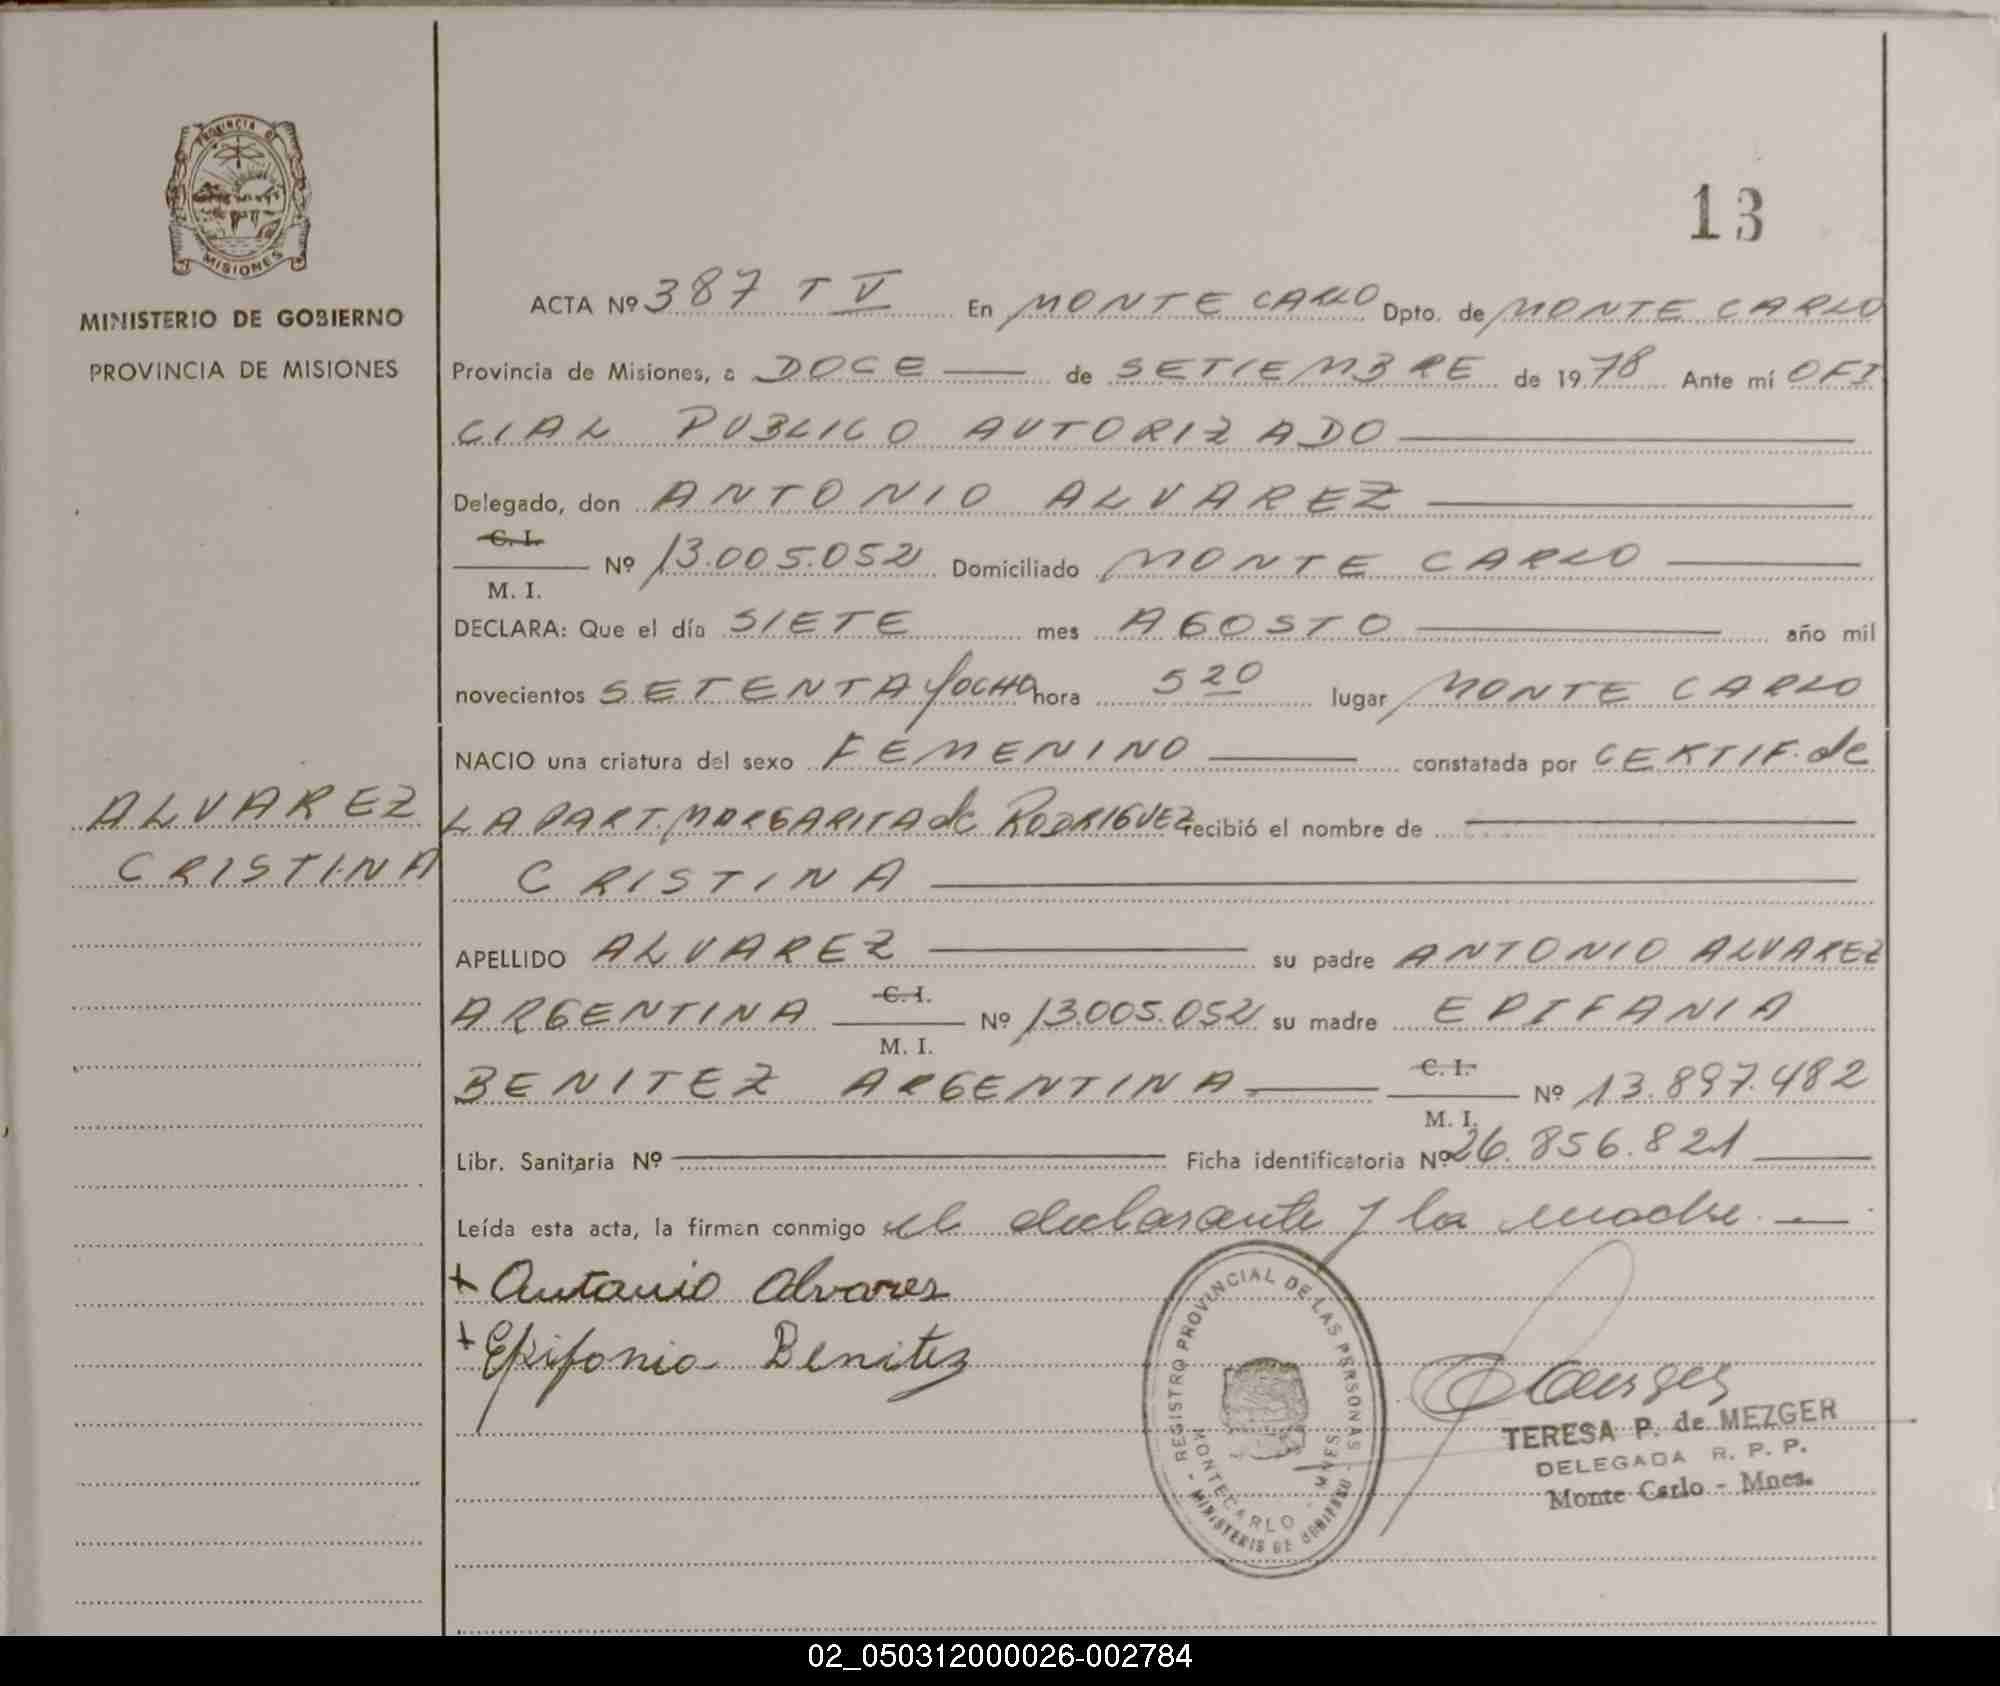 PROVINCIA DE
MISIONES
MINISTERIO DE GOBIERNO
PROVINCIA DE MISIONES
ALVAREZ
CRISTINA
13
ACTA Nº 387 T V En MONTE CARLO Dpto. de MONTE CARLO
Provincia de Misiones, a DOCE de SETIEMBRE de 1978 Ante mí OFI
CIAL PUBLICO AUTORIZADO
Delegado, don ANTONIO ALVAREZ
C. I.
M. I. Nº 13.005.052 Domiciliado MONTE CARLO
DECLARA: Que el día SIETE mes AGOSTO año mil
novecientos SETENTA Y OCHO hora 5 20 lugar MONTE CARLO
NACIO una criatura del sexo FEMENINO constatada por CERTIF. de
LA PART MARGARITA de RODRIGUEZ recibió el nombre de
CRISTINA
APELLIDO ALVAREZ su padre ANTONIO ALVAREZ
ARGENTINA C. I. M. I. Nº 13.005.052 su madre EPIFANIA
BENITEZ ARGENTINA C. I. M. I. Nº 13.897.482
Libr. Sanitaria Nº Ficha identificatoria Nº 26.856.821
Leída esta acta, la firman conmigo el declarante y la madre.
+ Antonio Alvares
+ Epifania Benitez
REGISTRO PROVINCIAL DE LAS PERSONAS
MONTECARLO - MNES
MINISTERIO DE GOBIERNO
TERESA P. de MEZGER
DELEGADA R. P. P.
Monte Carlo - Mnes.
02_050312000026-002784